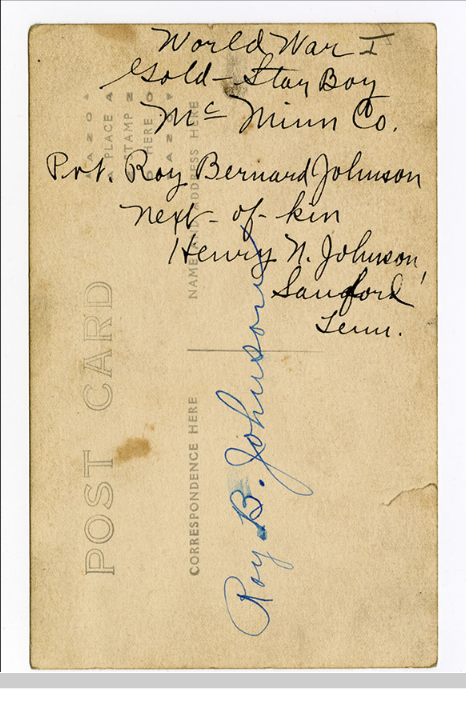 World War I
Gold-Star Boy
Mc Minn Co.
Pvt. Roy Bernard Johnson
next-of-kin
Henry N. Johnson
Sanford
Tenn.
Roy B. Johnson
POST CARD
CORRESPONDENCE HERE
NAME AND ADDRESS HERE
AZO
PLACE
STAMP
HERE
AZO